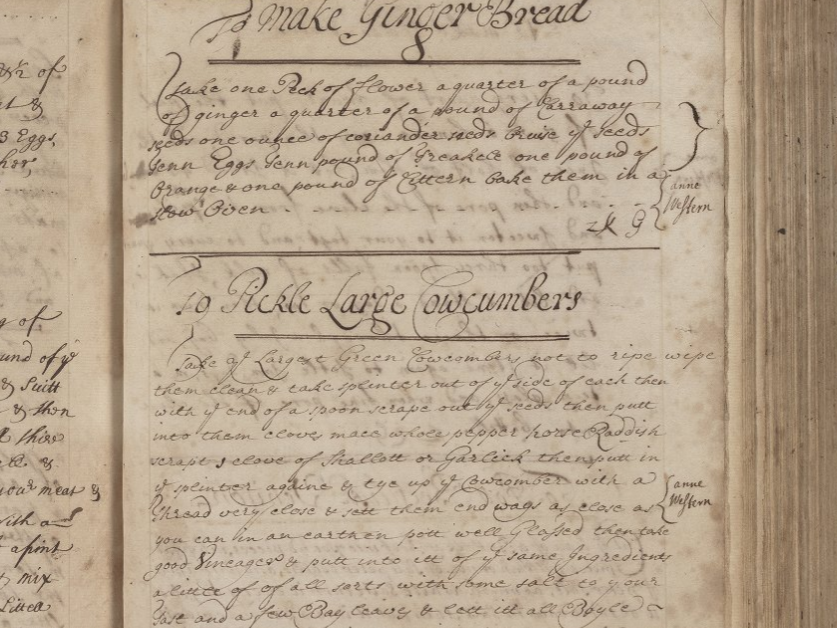 &r of
& 
3 Eggs,
g of
ound of ye
& Suitt
& then
& 
your meat &
with a
a pint
mix
Littea
To Make Ginger Bread
Take one Peck of flower a quarter of a pound
of ginger a quarter of a pound of Carraway
seeds one ounce of coriander seeds Bruise ye seeds
Tenn Eggs Tenn pound of Treakele one pound of
Orange & one pound of Cittern bake them in a
slow Oven
anne
Western
To Pickle Large Cowcumbers
Take ye Largest Green Cowcombers not to ripe wipe
them clean & take splinter out of ye side of each then
with ye end of a spoon scrape out ye seeds then putt
into them cloves mace whole pepper horse Raddish
scrapt 1 clove of shallott or Garlick then putt in
ye splinter againe & tye up ye Cowcomber with a
Thread very close & sett them end ways as close as
you can in an earthen pott well Glassed then take
good Vineager & putt into itt of ye same Ingredients
a littee of of all sorts with some salt to your
Tast and a few Bay leaves & lett itt all Boyle
anne
Western